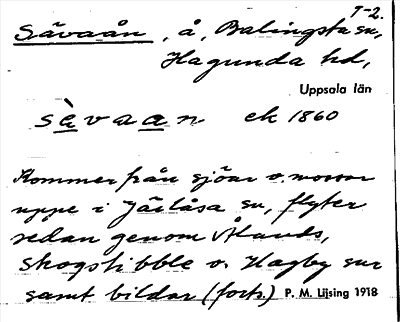 T-2.
Sävaån, å, Balingsta sn,
Hagunda hd,
Uppsala län
sàvaan ek 1860
Kommer från sjöar o. mossar
uppe i Järlåsa sn, flyter
sedan genom Ålands,
Skogstibble o. Hagby snr
samt bildar (forts.) P. M. Lijsing 1918